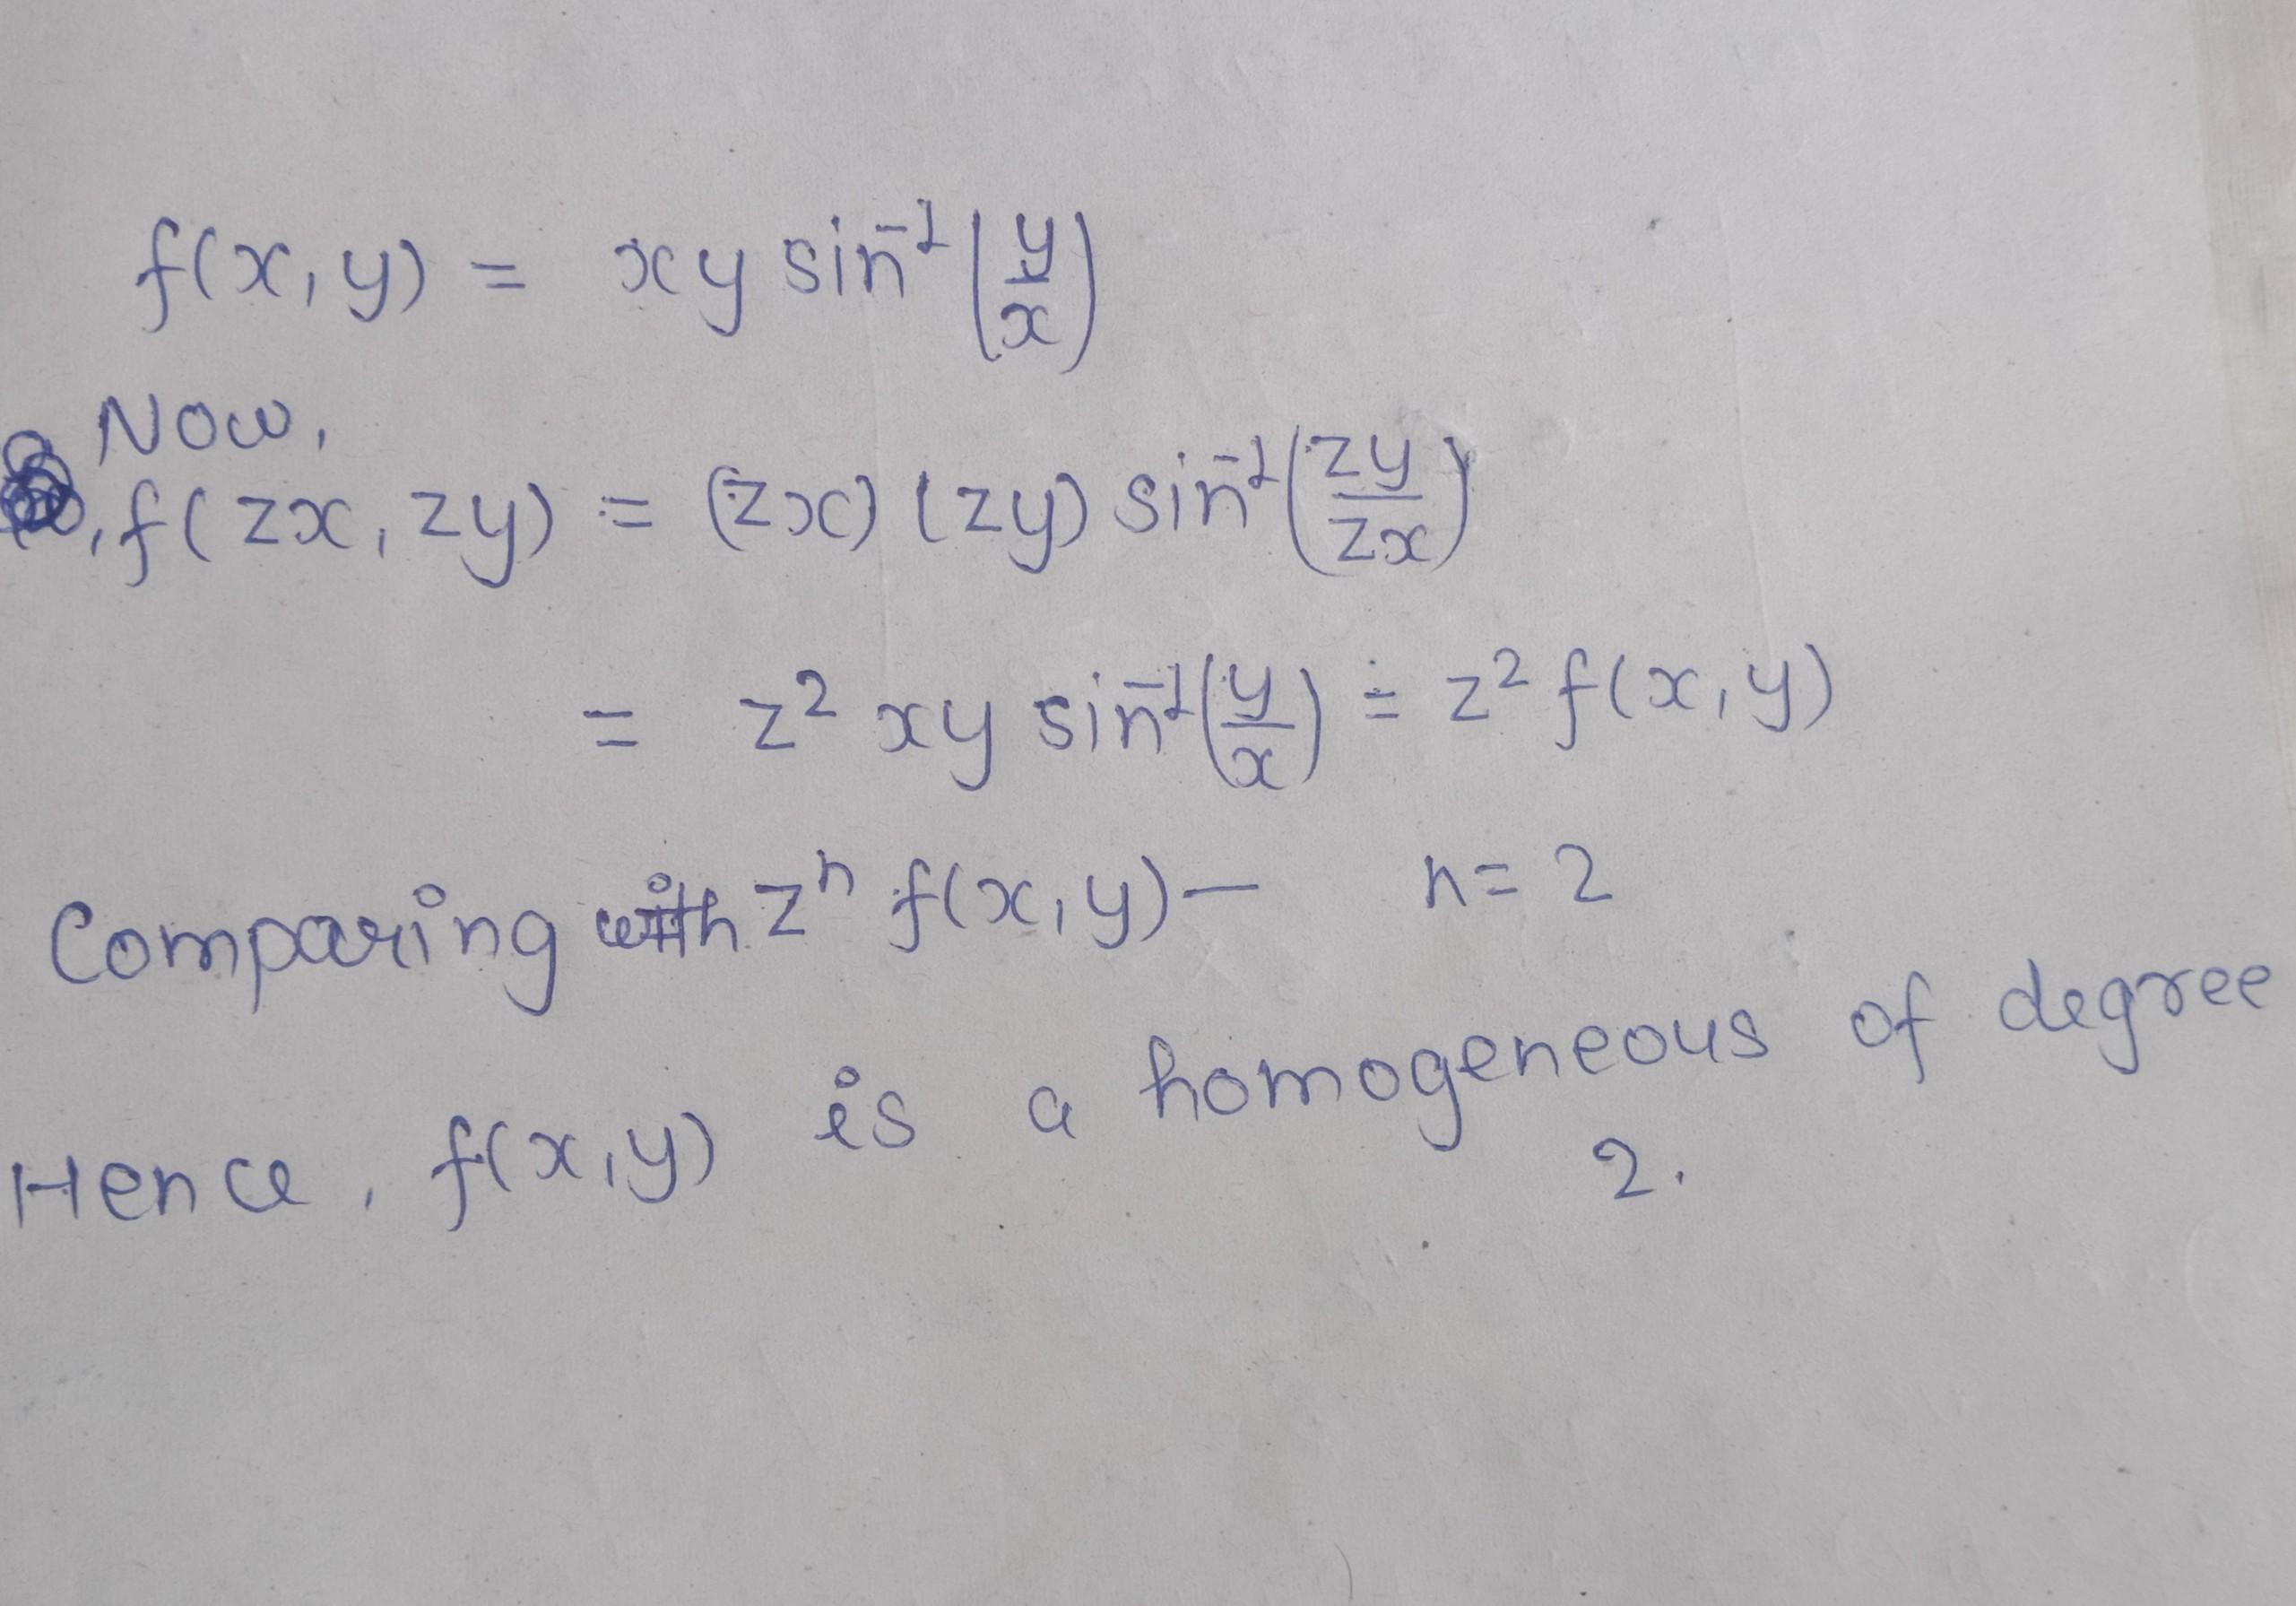 f(x, y) = xy sin⁻¹(y/x)
Now,
, f(zx, zy) = (zx) (zy) sin⁻¹(zy/zx)
= z² xy sin⁻¹(y/x) = z² f(x, y)
Comparing with zⁿ f(x, y) — n = 2
Hence, f(x, y) is a homogeneous of degree
2.